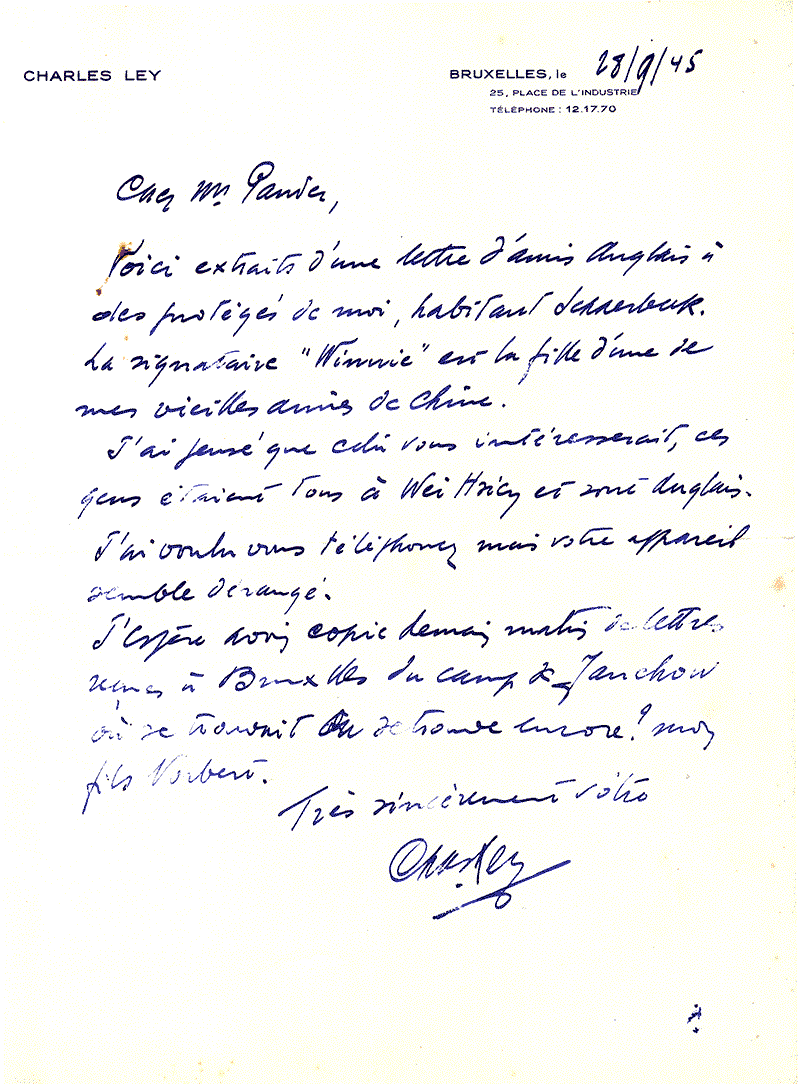 CHARLES LEY
BRUXELLES, le 28/9/45
25, PLACE DE L'INDUSTRIE
TÉLÉPHONE : 12.17.70
Cher Mr. Panier,
Voici extraits d'une lettre d'amis Anglais à
des protégés de moi, habitant Schaerbeek.
La signataire "Winnie" est la fille d'une de
mes vieilles amies de Chine.
J'ai pensé que cela vous intéresserait, ces
gens étaient tous à Wei Hsien et sont Anglais.
J'ai voulu vous téléphoner mais votre appareil
semble dérangé.
J'espère avoir copie demain matin de lettres
reçues à Bruxelles du camp de Yanchow
où se trouvait ou se trouve encore? mon
fils Norbert.
Très sincèrement vôtre
Chas Ley